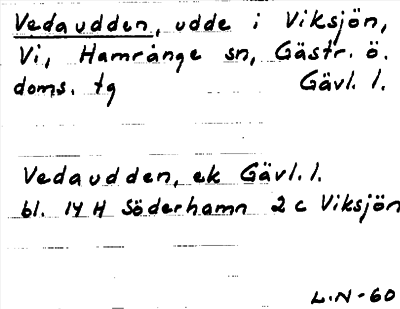 Vedaudden, udde i Viksjön,
Vi, Hamrånge sn, Gästr. ö.
doms. tg Gävl. l.
Vedaudden, ek Gävl. l.
bl. 14 H Söderhamn 2 c Viksjön
L.N-60